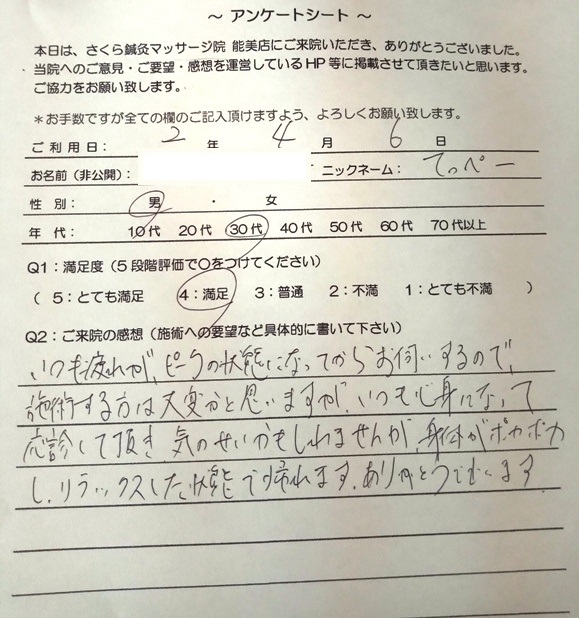 ～ アンケートシート ～
本日は、さくら鍼灸マッサージ院 能美店にご来院いただき、ありがとうございました。
当院へのご意見・ご要望・感想を運営しているHP等に掲載させて頂きたいと思います。
ご協力をお願い致します。
＊お手数ですが全ての欄のご記入頂けますよう、よろしくお願い致します。
ご利用日： 2 年 4 月 6 日
お名前（非公開）： ニックネーム： てっぺー
性 別： 男 ・ 女
年 代： 10代 20代 30代 40代 50代 60代 70代以上
Q1：満足度（5段階評価で〇をつけてください）
（ 5：とても満足 4：満足 3：普通 2：不満 1：とても不満 ）
Q2：ご来院の感想（施術への要望など具体的に書いて下さい）
いつも疲れが、ピークの状態になってからお伺いするので、
施術する方は大変かと思いますが、いつも心身になって
応診して頂き 気のせいかもしれませんが、身体がポカポカ
し、リラックスした状態で帰れます。ありがとうございます